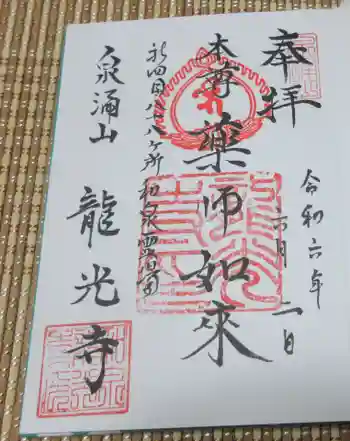 奉拝
令和六年
六月二日
本尊薬師如來
新四国八十八ヶ所和泉霊場
泉涌山
龍光寺